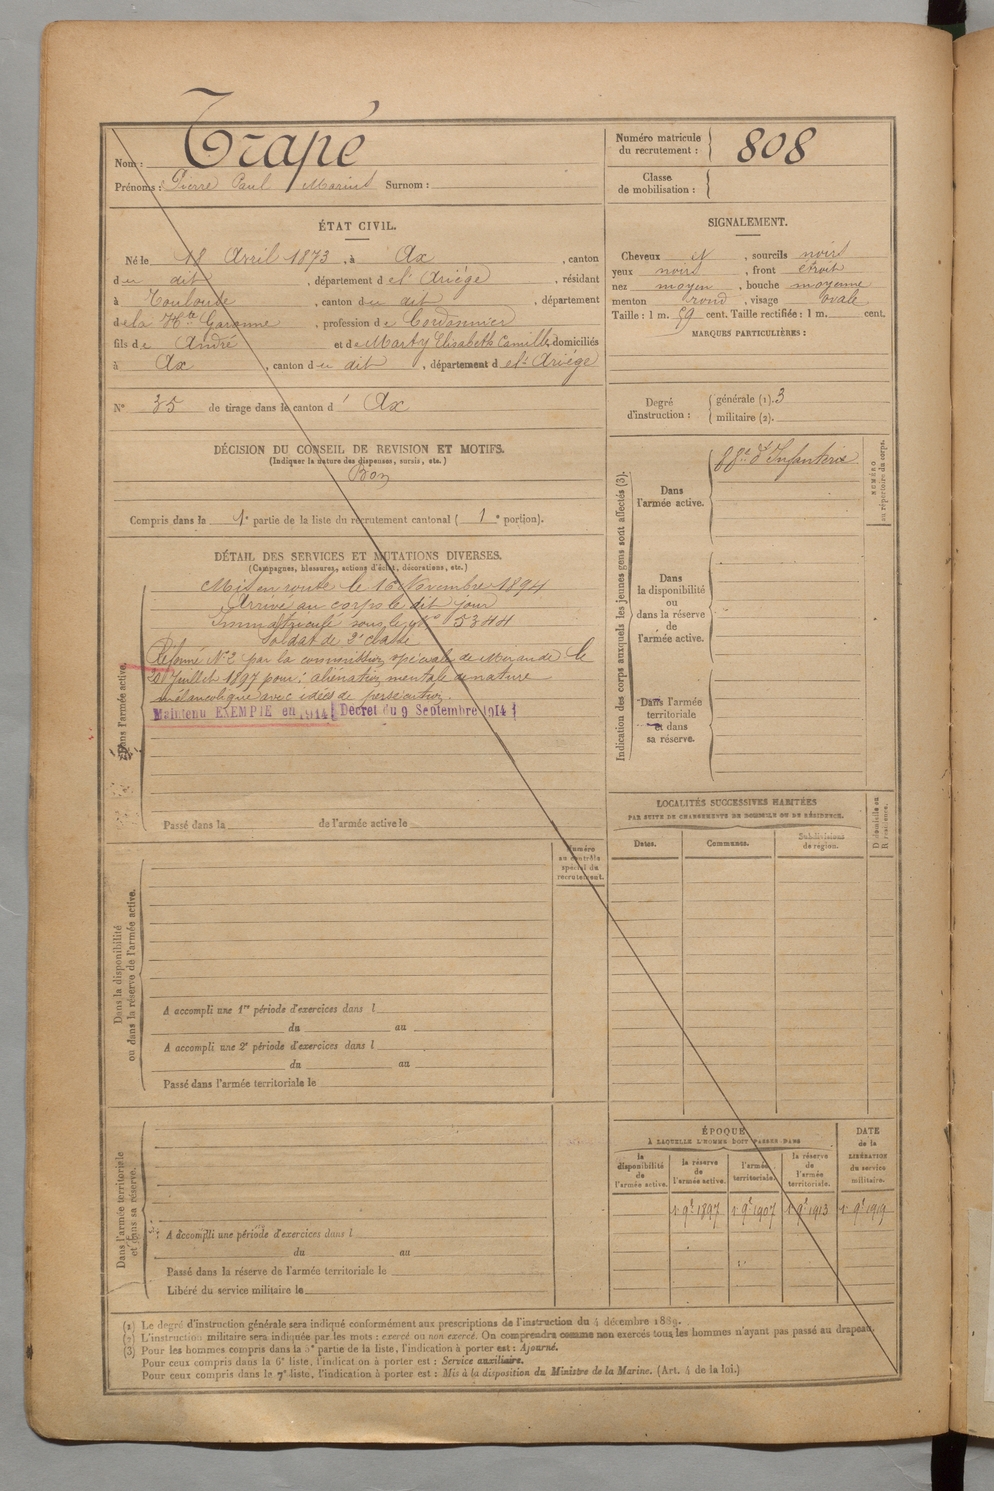 Nom : Trapé
Prénoms : Pierre Paul Marius Surnom :
Numéro matricule du recrutement : 808
Classe de mobilisation :
ÉTAT CIVIL.
Né le 18 Avril 1873, à Ax, canton
du dit, département de l'Ariège, résidant
à Toulouse, canton du dit, département
de la Hte Garonne, profession de Cordonnier
fils de André et de Marty Elisabeth Camille, domiciliés
à Ax, canton du dit, département de l'Ariége
N° 35 de tirage dans le canton d' Ax
DÉCISION DU CONSEIL DE REVISION ET MOTIFS.
(Indiquer la nature des dispenses, sursis, etc.)
Bon
Compris dans la 1e partie de la liste du recrutement cantonal (1e portion).
SIGNALEMENT.
Cheveux et, sourcils noirs
yeux noirs, front étroit
nez moyen, bouche moyenne
menton rond, visage ovale
Taille : 1 m. 59 cent. Taille rectifiée : 1 m. cent.
MARQUES PARTICULIÈRES :
Degré d'instruction : générale (1). 3
militaire (2).
DÉTAIL DES SERVICES ET MUTATIONS DIVERSES.
(Campagnes, blessures, actions d'éclat, décorations, etc.)
Dans l'armée active.
Mis en route le 16 Novembre 1894
Arrivé au corps le dit jour
Immatriculé sous le No 5344
Soldat de 2e classe
Réformé N° 2 par la commission spéciale de Mirande le
Juillet 1897 pour : aliénation mentale de nature
mélancolique avec idées de persécution.
Maintenu EXEMPTE en 1914 (Décret du 9 Septembre 1914)
Passé dans la de l'armée active le
Indication des corps auxquels les jeunes gens sont affectés (3).
Dans l'armée active. 88e d'Infanterie
Dans la disponibilité ou dans la réserve de l'armée active.
Dans l'armée territoriale et dans sa réserve.
NUMÉRO au répertoire du corps.
LOCALITÉS SUCCESSIVES HABITÉES
PAR SUITE DE CHANGEMENTS DE DOMICILE OU DE RÉSIDENCE.
Dates. Communes. Subdivisions de région. D domicile ou R résidence.
Dans la disponibilité ou dans la réserve de l'armée active.
Numéro au contrôle spécial du recrutement.
A accompli une 1re période d'exercices dans l
du au
A accompli une 2e période d'exercices dans l
du au
Passé dans l'armée territoriale le
Dans l'armée territoriale et dans sa réserve.
A accompli une période d'exercices dans l
du au
Passé dans la réserve de l'armée territoriale le
Libéré du service militaire le
ÉPOQUE
À LAQUELLE L'HOMME DOIT PASSER DANS
la disponibilité de l'armée active. la réserve de l'armée active. l'armée territoriale. la réserve de l'armée territoriale.
DATE de la LIBÉRATION du service militaire.
1 9e 1897 1 9e 1907 1 9e 1913 1 9e 1919
(1) Le degré d'instruction générale sera indiqué conformément aux prescriptions de l'instruction du 4 décembre 1889.
(2) L'instruction militaire sera indiquée par les mots : exercé ou non exercé. On comprendra comme non exercés tous les hommes n'ayant pas passé au drapeau.
(3) Pour les hommes compris dans la 5e partie de la liste, l'indication à porter est : Ajourné.
Pour ceux compris dans la 6e liste, l'indication à porter est : Service auxiliaire.
Pour ceux compris dans la 7e liste, l'indication à porter est : Mis à la disposition du Ministre de la Marine. (Art. 4 de la loi.)